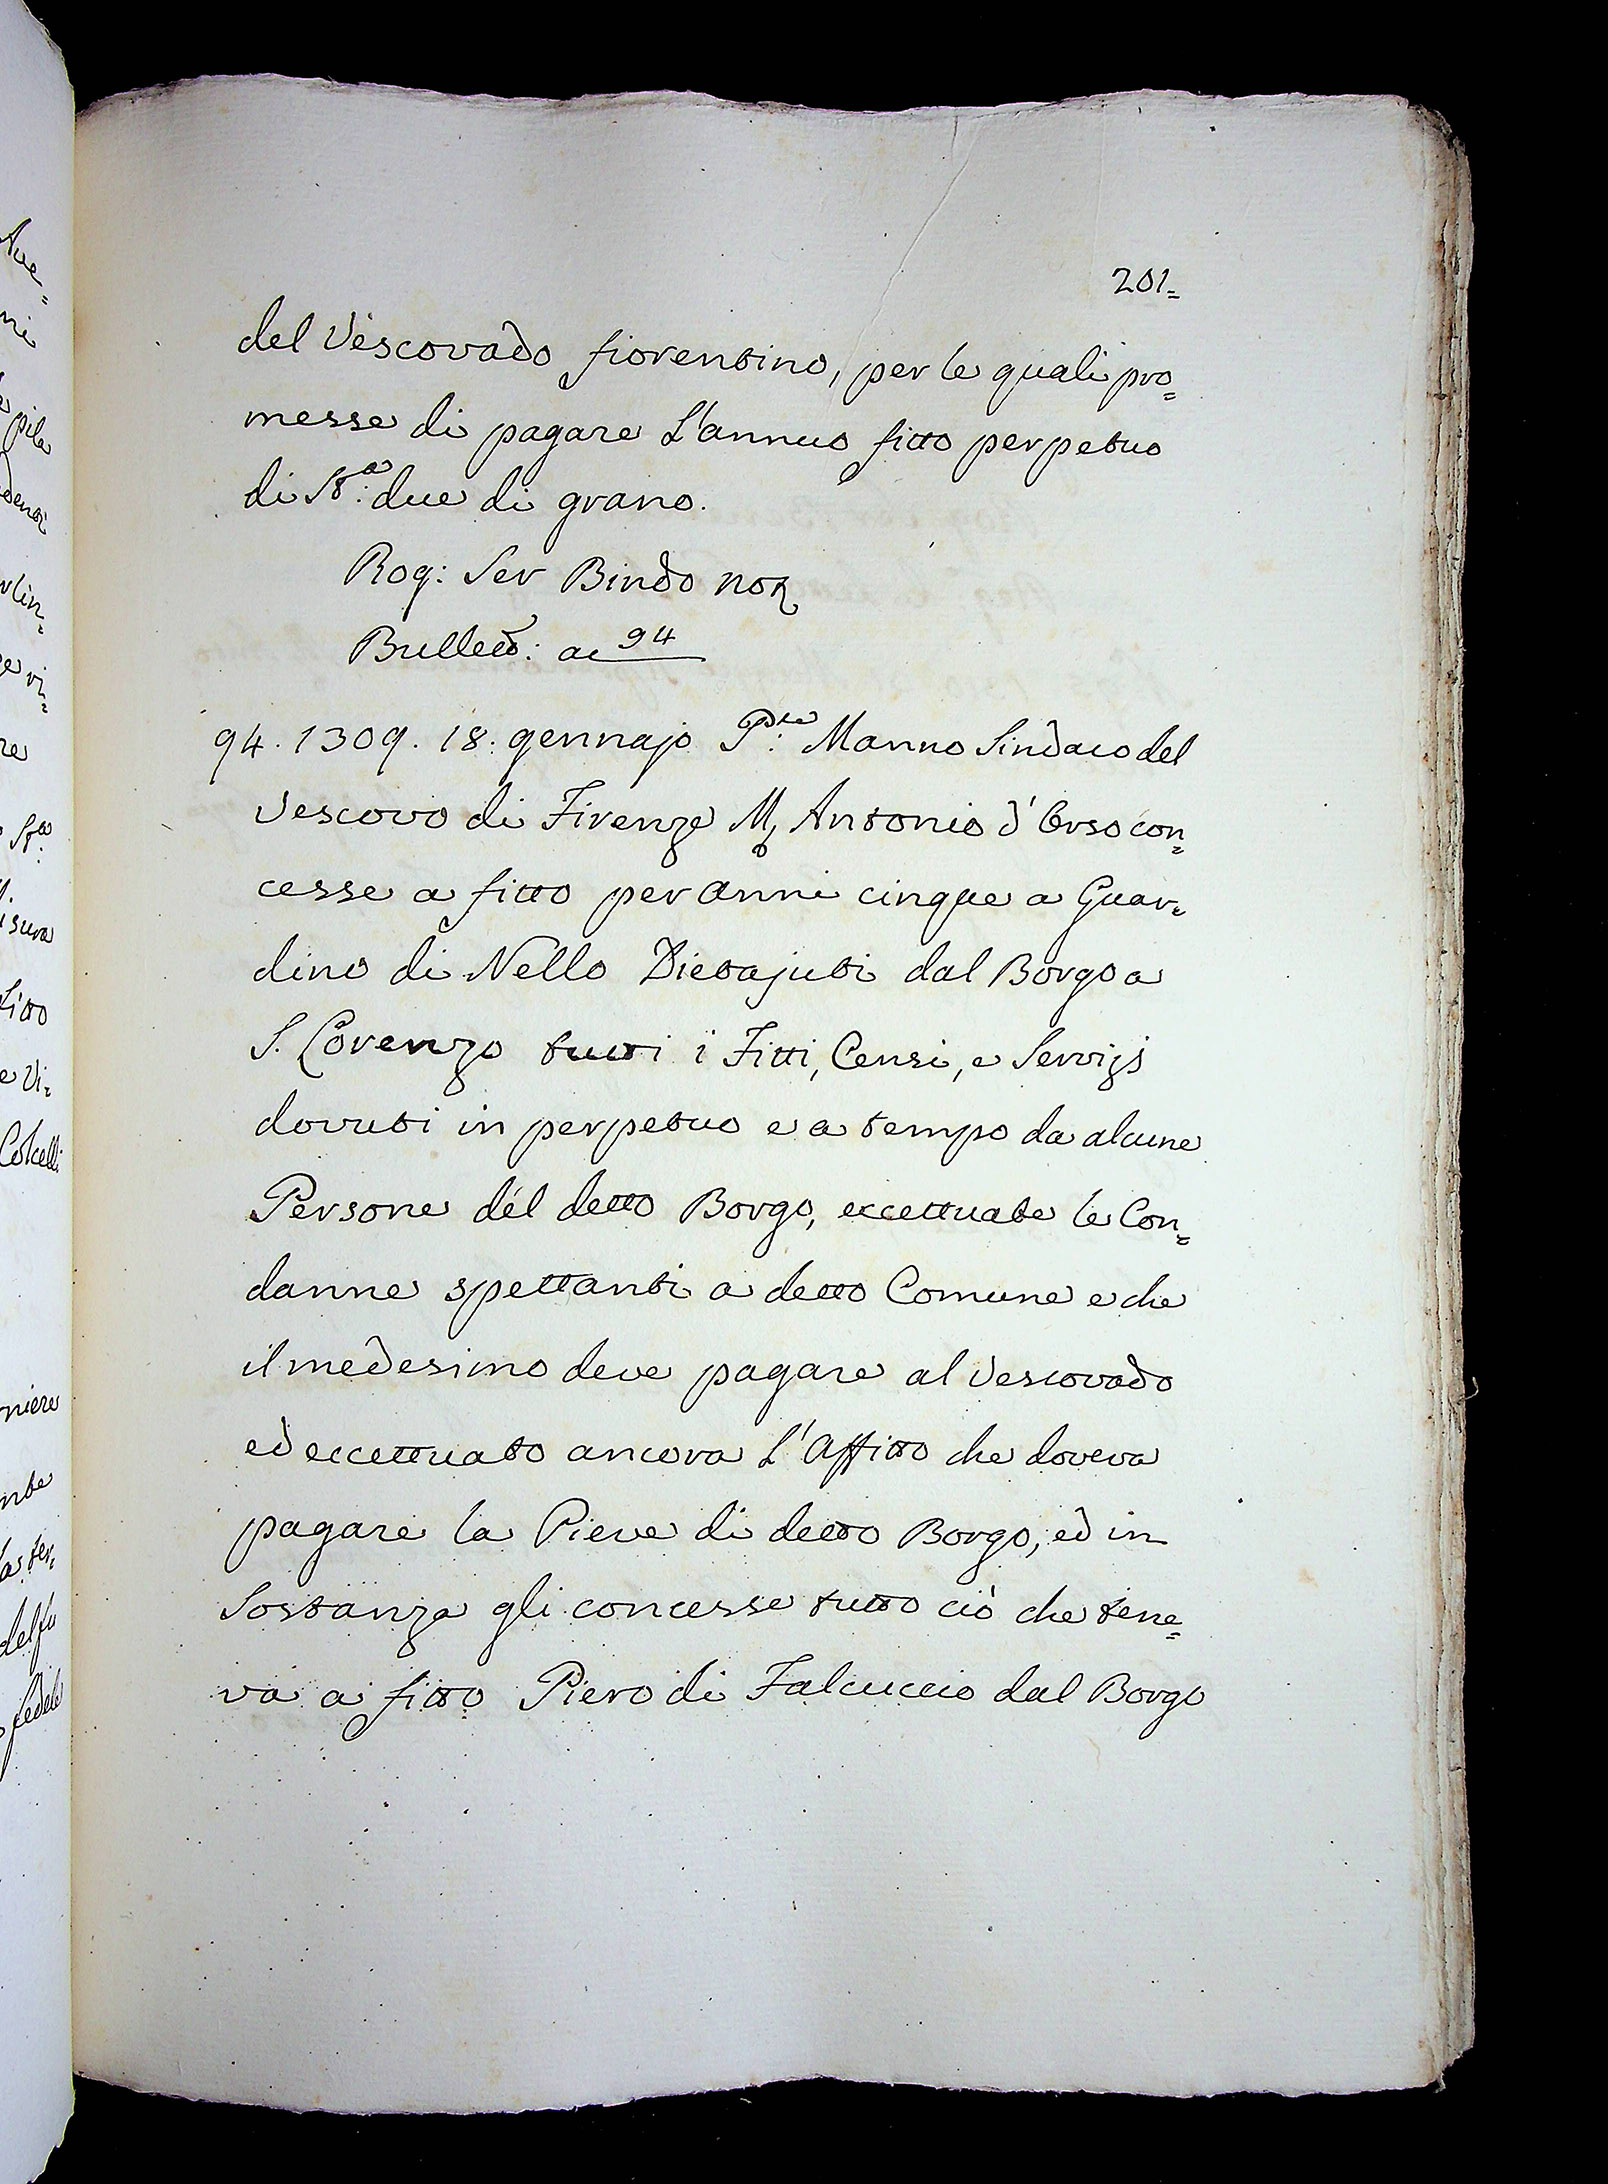 201=
del Vescovado fiorentino, per le quali pro=
messe di pagare L'annuo fitto perpetuo
di St.ª due di grano.
Rog: Ser Bindo not
Bullett: a 94
94. 1309. 18. gennajo P.te Manno Sindaco del
Vescovo di Firenze M Antonio d'Orso con=
cesse a fitto per anni cinque a Guar=
dino di Nello Dietajuti dal Borgo a
S. Lorenzo tutti i Fitti, Censi, e Servizj
dovuti in perpetuo e a tempo da alcune
Persone del detto Borgo, eccettuate le Con=
danne spettanti a detto Comune e che
il medesimo deve pagare al Vescovado
ed eccettuato ancora L'Affitto che doveva
pagare la Pieve di detto Borgo, ed in
Sostanza gli concesse tutto ciò che tene=
va a fitto Piero di Falcuccio dal Borgo